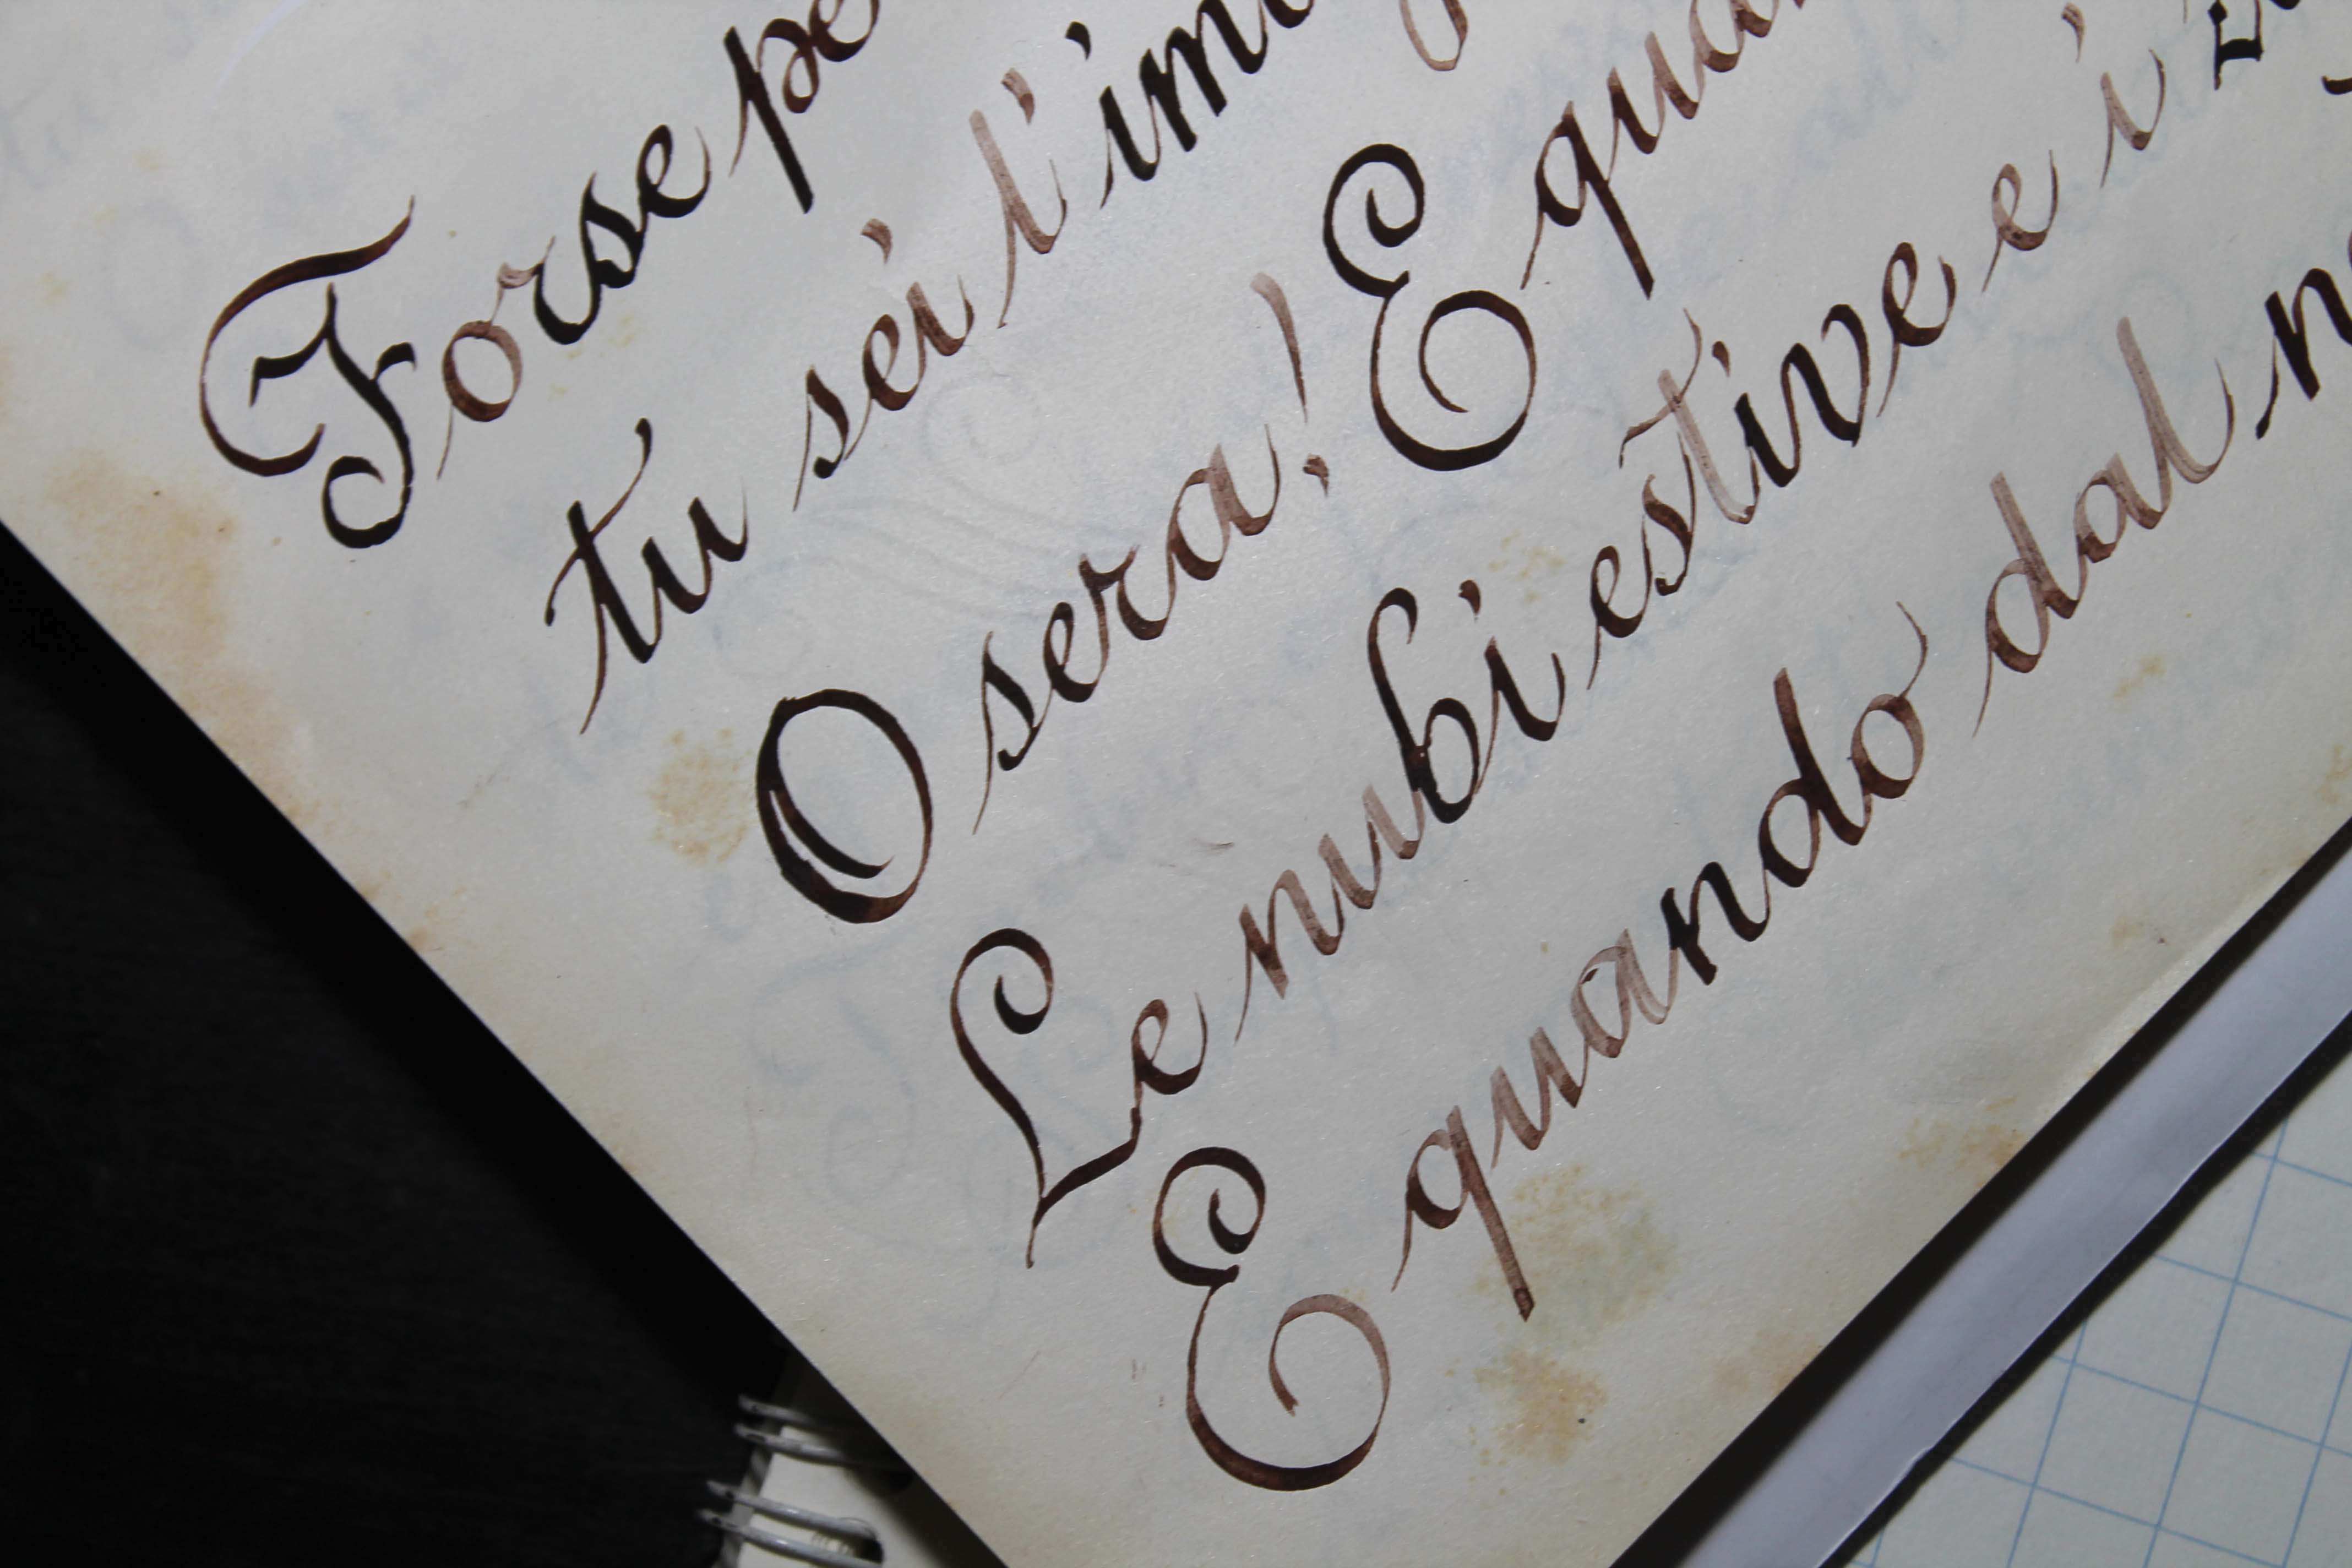 Forse pe
tu sei l'im
O sera! E qua
Le nubi estive e i
E quando dal n